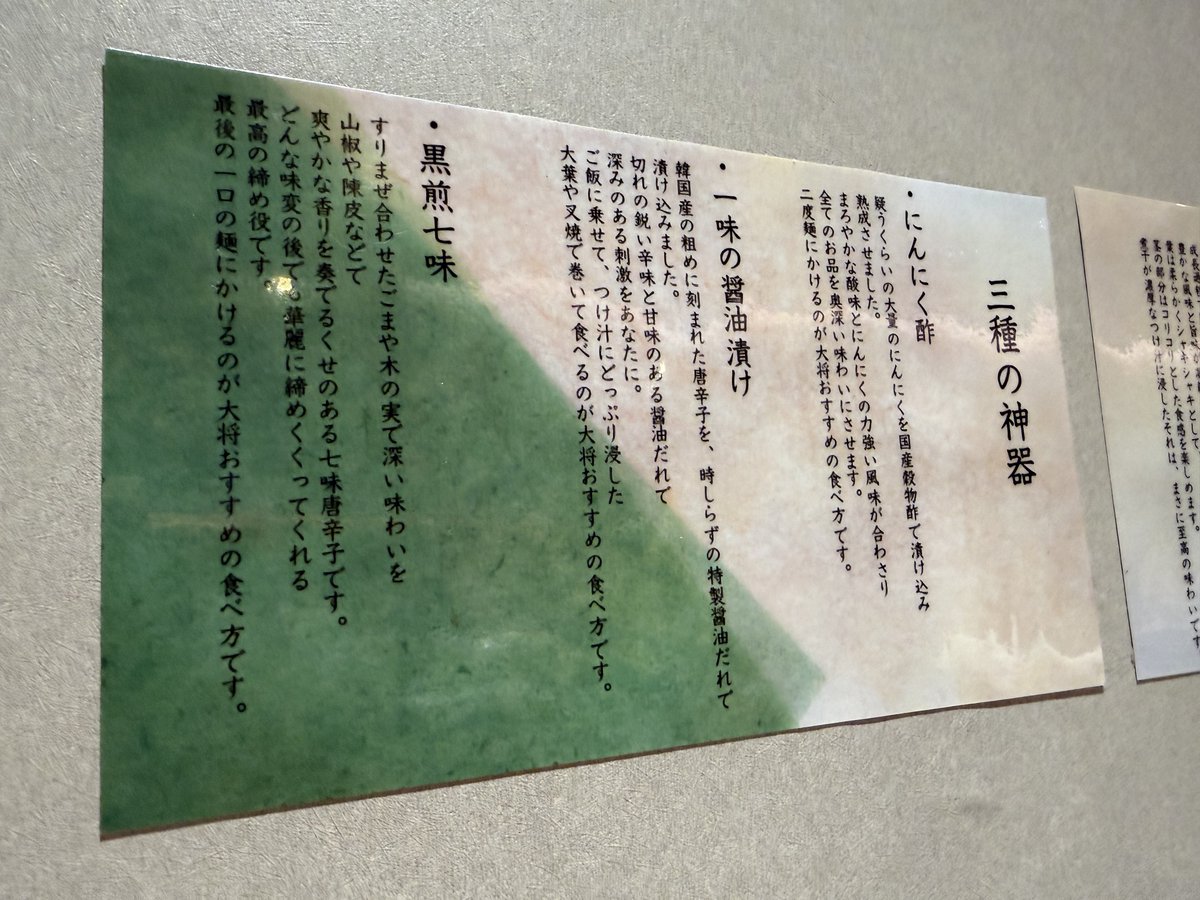 三種の神器
・にんにく酢
疑うくらいの大量のにんにくを国産穀物酢で漬け込み
熟成させました。
まろやかな酸味とにんにくの力強い風味が合わさり
全てのお品を奥深い味わいにさせます。
二度麺にかけるのが大将おすすめの食べ方です。
・一味の醤油漬け
韓国産の粗めに刻まれた唐辛子を、時しらずの特製醤油だれで
漬け込みました。
切れの鋭い辛味と甘味のある醤油だれで
深みのある刺激をあなたに。
ご飯に乗せて、つけ汁にどっぷり浸した
大葉や叉焼で巻いて食べるのが大将おすすめの食べ方です。
・黒煎七味
すりまぜ合わせたごまや木の実で深い味わいを
山椒や陳皮などで
爽やかな香りを奏でるくせのある七味唐辛子です。
どんな味変の後でも華麗に締めくくってくれる
最高の締め役です
最後の一口の麺にかけるのが大将おすすめの食べ方です。
豊かな風味と旨味
葉は柔らかくシャキシャキとして、
茎の部分はコリコリとした食感を楽しめます。
煮干が濃厚なつけ汁に浸したそれは、まさに至高の味わいです